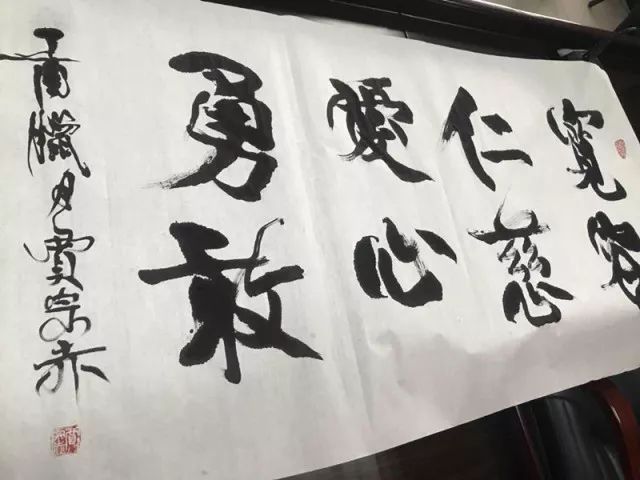 寬容
仁慈
愛心
勇敢
丁酉臘月賈